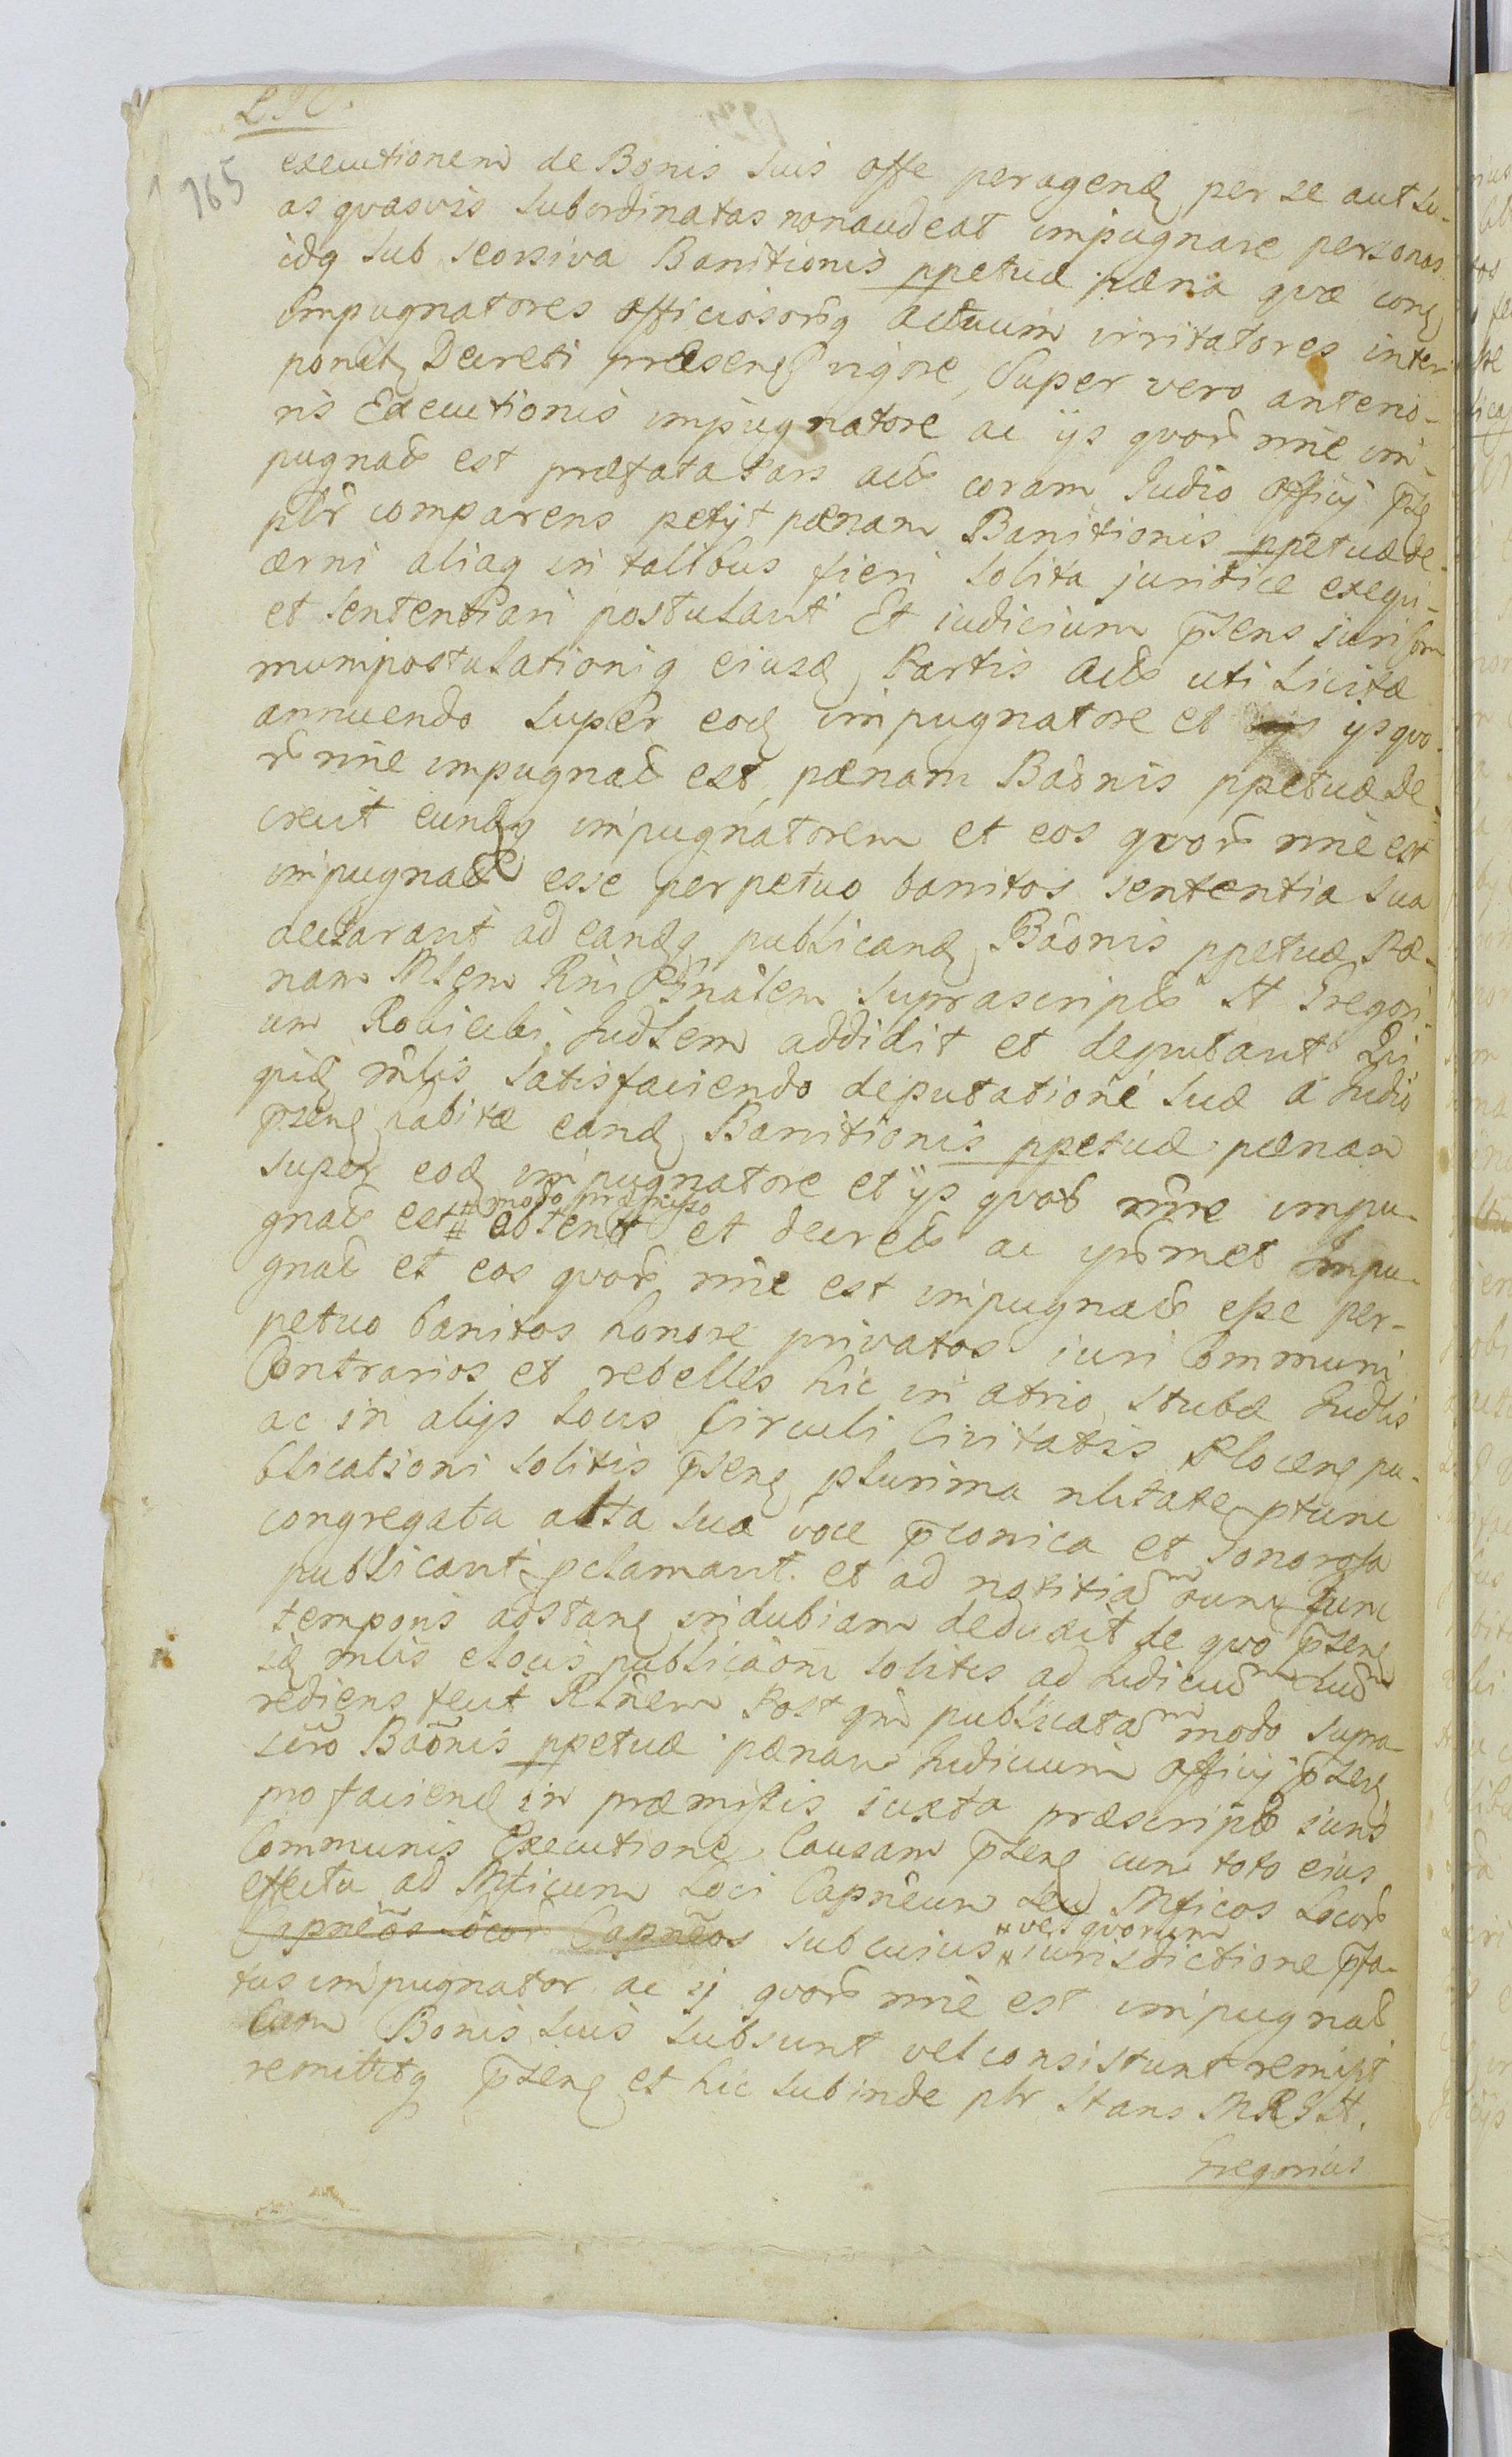 765
executionem de Bonis suis offe peragend per se aut su-
as quasvis subordinatas non audeat impugnare personas
idq sub seorsiva Banitionis ppetuæ pæna quæ con
impugnatores officiosorq actuum irritatores inter
ponit Decreti præsen vigore, Super vero anterio-
ris Executionis impugnatore ac ijs quor nne im-
pugnat est præfata Pars act coram Iudio officij pse
plr comparens petijt pænam Banitionis ppetuæ de-
cerni aliaq in talibus fieri solita juridice exequi
et sententiari postulavit Et iudicium psens iuri com
muni postulationiq eiusd Partis act uti licitæ
annuendo super eod impugnatore et ijs quo-
r nne impugnat est, pænam Baonis ppetuæ de-
crevit eundq impugnatorem et eos quor nne est
impugnat esse perpetuo banitos sententia sua
declaravit ad eandq publicand Baonis ppetuæ Pæ-
nam Mlem Rni Gnalem suprascript H Gregori-
um Rovicki Iudlem addidit et deputavit Qui
quid mlis satisfaciendo deputationi suæ a Iudio
psen habitæ eand Banitionis ppetuæ pænam
super eod impugnatore et ijs quor nne impu-
gnat est # modo præmisso obtent et decret ac ipsmet Impu-
gnat et eos quor nne est impugnat esse per-
petuo banitos honore privatos iuri Communi
Contrarios et rebelles hic in atrio stubæ Iudlis
ac in alijs locis Circuli Civitatis Plocen pu-
blicationi solitis psen plurima nlitate ptunc
congregata alta sua voce pconica et sonorosa
publicavit pclamavit et ad notitiam tunc
temporis adstan indubiam deduxit de quo psen
id mlis e locis publicaoni solitis ad Iudicium
rediens fecit Rlnem Post qm publicatam modo supra
scro Baonis ppetuæ pænam Iudicium officij psen
pro facien in præmissis iuxta præscript iuris
Communis Executione Causam psen cum toto eius
effectu ad Mticum Loci Capneum seu Mticos Locor
Capneos locor Capneos sub cuius # vel quorum iurisdictione pfa-
tus impugnator ac ij quor nne est impugnat
cum Bonis suis subsunt vel consistunt remisit
remittitq psen et hic subinde plr stans MRSH.
Gregorius